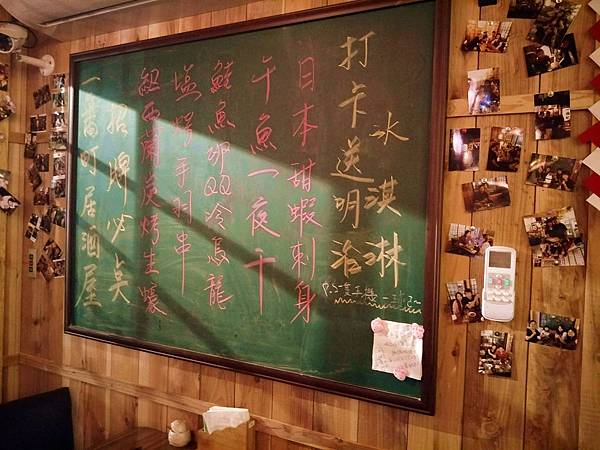 打卡送明治
冰淇淋
P.S一隻手機一球
日本甜蝦刺身
午魚一夜干
鮭魚卵QQ冷烏龍
塩烤手羽串
紐西蘭炭烤生蠔
招牌必点
一番町居酒屋